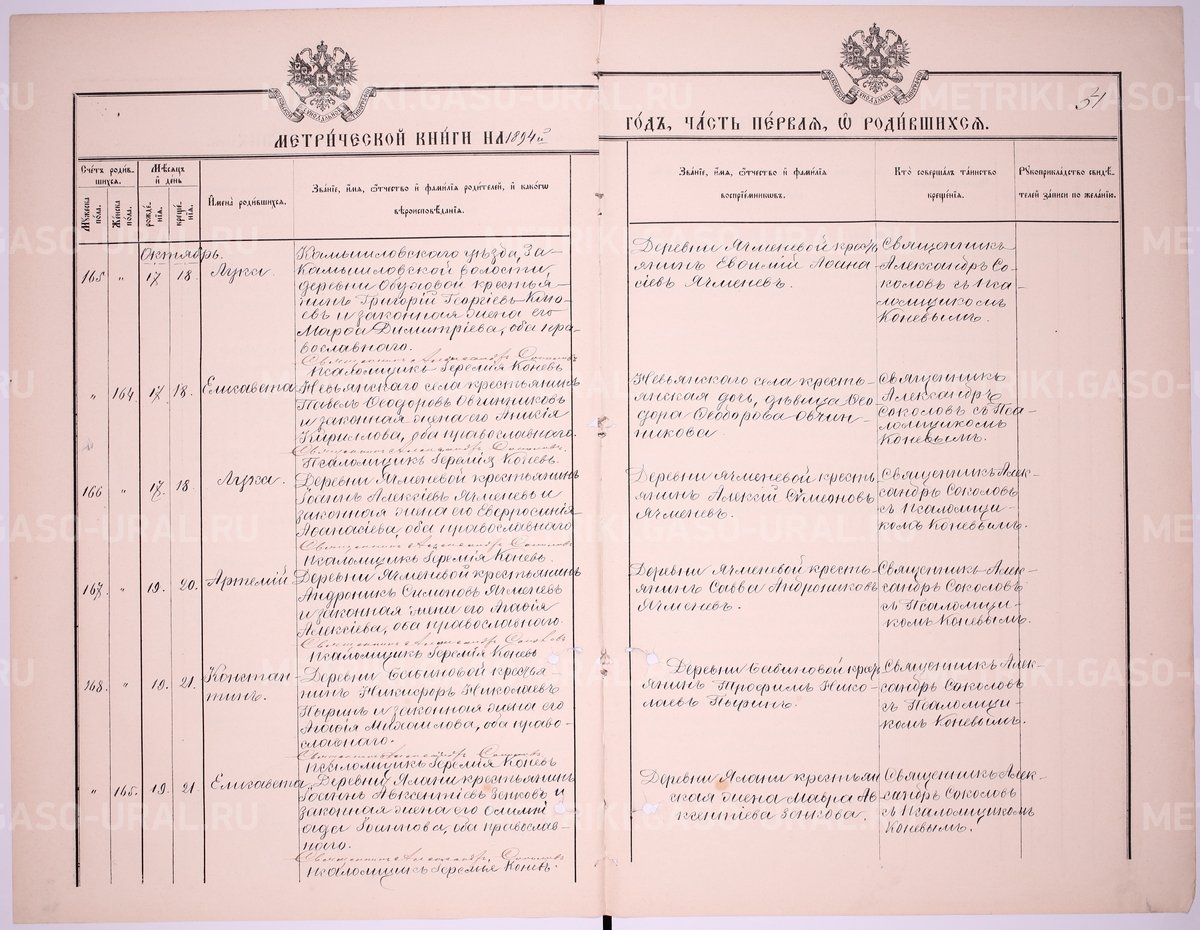 МЕТРИ́ЧЕСКОЙ КНИ́ГИ НА 1894й
ГО́ДЪ, ЧА́СТЬ ПЕ́РВАЯ, Ѡ҆ РОДИ́ВШИХСѦ.
31
Сче́тъ роди́в-
шихся.
Мѣ́сяцъ
и҆ день
Мꙋ́жеска по́ла.
Же́нска по́ла.
рожде́-
нїя.
креще́-
нїя.
И҆мена̀ роди́вшихся.
Зва́нїе, и҆́мя, ѻ҆́тчество и҆ фами́лїя роди́телей, и҆ како́гѡ
вѣроисповѣ́данїя.
Зва́нїе, и҆́мя, ѻ҆́тчество и҆ фами́лїя
воспрїе́мниковъ.
Кто̀ соверша́лъ та́инство
креще́нїя.
Рꙋкоприкла́дство свидѣ́-
телей за́писи по жела́нїю.
Октябрь.
165 " 17 18. Лука.
Камышловскаго уѣзда, За-
Камышловской волости,
деревни Обуховой крестья-
нинъ Григорій Георгіевъ
евъ и законная жена его
Марѳа Димитріева, оба пра-
вославнаго.
Священникъ Александръ Соколовъ
Псаломщикъ Іеремія Коневъ
Деревни Ячменевой крест
янинъ Евѳимій Аѳана-
сіевъ Ячменевъ.
Священникъ
Александръ Со-
коловъ съ Пса-
ломщикомъ
Коневымъ.
" 164. 17 18. Елисавета
Невьянскаго села крестьянинъ
Павелъ Ѳеодоровъ Овчинниковъ
и законная жена его Анисія
Кирилова, оба православнаго.
Священникъ Александръ Соколовъ
Псаломщикъ Іеремія Коневъ.
Невьянскаго села кресть-
янская дочь, дѣвица Ѳео-
дора Ѳеодорова Овчин-
никова.
Священникъ
Александръ
Соколовъ съ Пса-
ломщикомъ
Коневымъ.
166 " 17. 18. Лука.
Деревни Ячменевой крестьянинъ
Іоаннъ Алексіевъ Ячменевъ и
законная жена его Евфросинія
Аѳанасіева, оба православнаго
Священникъ Александръ Соколовъ
Псаломщикъ Іеремія Коневъ
Деревни Ячменевой кресть
янинъ Алексій Симеоновъ
Ячменевъ.
Священникъ Алек-
сандръ Соколовъ
съ Псаломщи-
комъ Коневымъ.
167. " 19. 20. Артемій.
Деревни Ячменевой крестьянинъ
Андроникъ Симоновъ Ячменевъ
и законная жена его Агаѳія
Алексіева, оба православнаго.
Священникъ Александръ Соколовъ
Псаломщикъ Іеремія Коневъ
Деревни Ячменевой кресть-
янинъ Савва Андрониковъ
Ячменевъ.
Священникъ Алек-
сандръ Соколовъ
съ Псаломщи-
комъ Коневымъ.
168. " 19. 21. Констан-
тинъ.
Деревни Савиновой крестья
нинъ Никифоръ Николаевъ
Пыринъ и законная жена его
Агаѳія Михаилова, оба право-
славнаго.
Священникъ Александръ Соколовъ
Псаломщикъ Іеремія Коневъ
Деревни Савиновой крест
янинъ Трофимъ Нико-
лаевъ Пыринъ.
Священникъ Алек-
сандръ Соколовъ
съ Псаломщи-
комъ Коневымъ.
" 165. 19. 21. Елизавета
Деревни Ялани крестьянинъ
Іоаннъ Авксентіевъ Зенковъ и
законная жена его Олимпі
ада Іоаннова, оба православ-
наго.
Священникъ Александръ Соколовъ
Псаломщикъ Іеремія Коневъ.
Деревни Ялани крестьян
ская жена Мавра Ав-
ксентіева Зенкова.
Священникъ Алек-
сандръ Соколовъ
съ Псаломщикомъ
Коневымъ.
METRIKI.GASO-URAL.RU